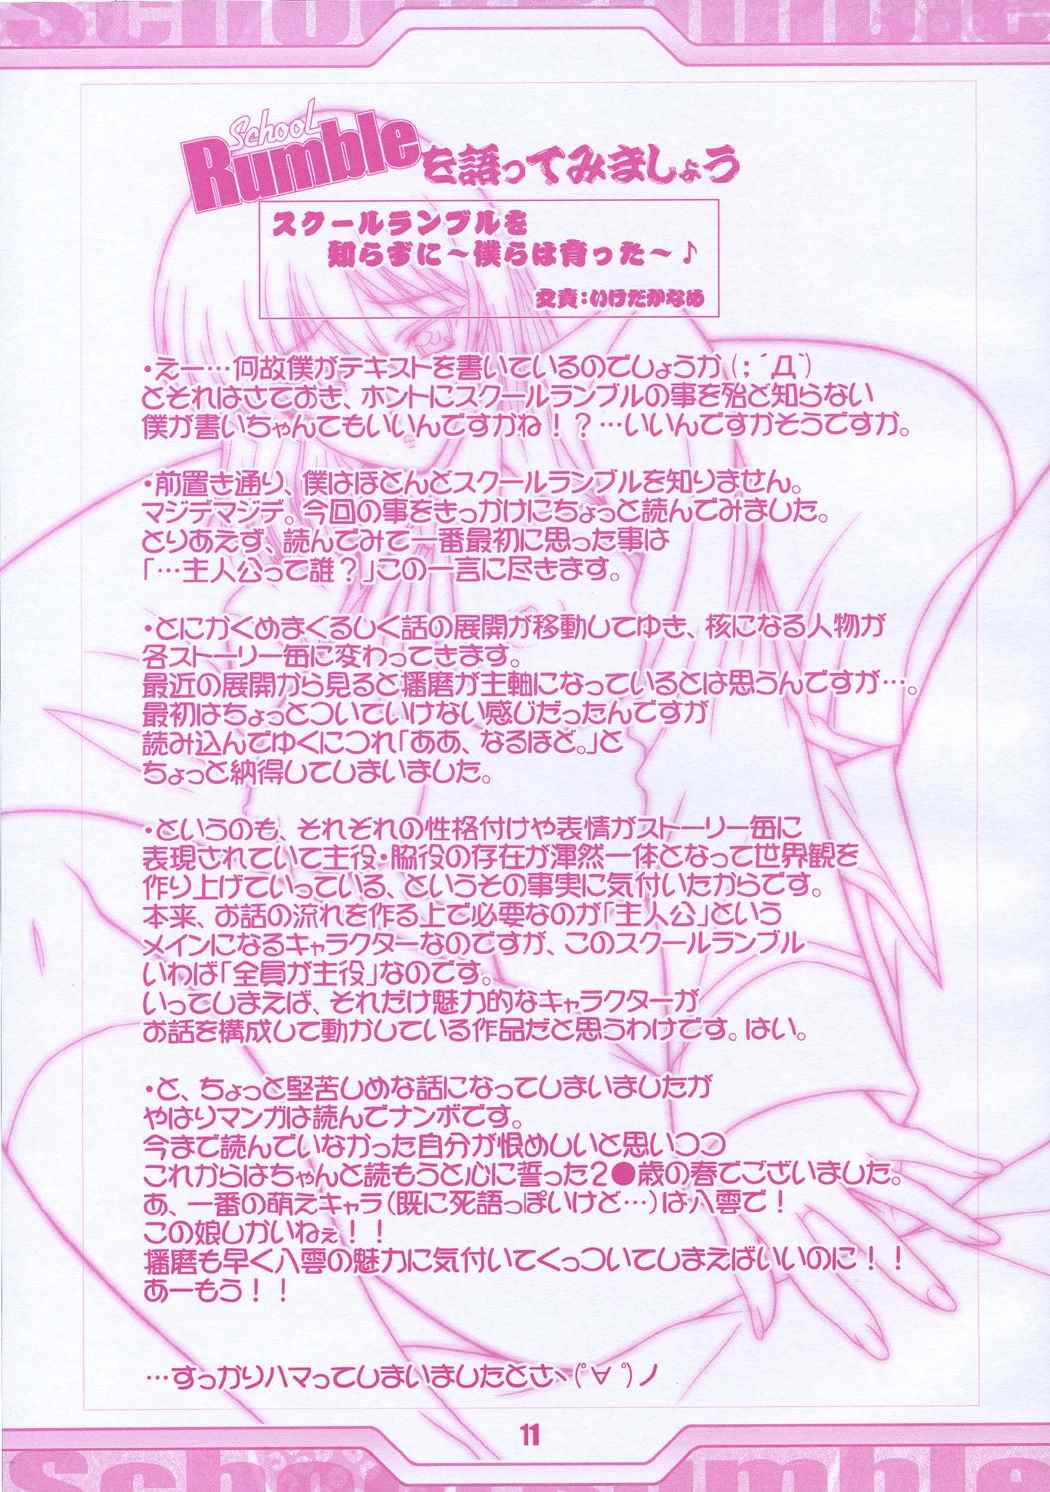 School Rumbleを語ってみましょう
スクールランブルを
知らずに～僕らは育った～♪
文責：いけだかなめ
・えー…何故僕がテキストを書いているのでしょうか(；´Д`)
とそれはさておき、ホントにスクールランブルの事を殆ど知らない
僕が書いちゃんてもいいんですかね！？…いいんですかそうですか。
・前置き通り、僕はほとんどスクールランブルを知りません。
マジデマジデ。今回の事をきっかけにちょっと読んでみました。
とりあえず、読んでみて一番最初に思った事は
「…主人公って誰？」この一言に尽きます。
・とにかくめまぐるしく話の展開が移動してゆき、核になる人物が
各ストーリー毎に変わってきます。
最近の展開から見ると播磨が主軸になっているとは思うんですが…。
最初はちょっとついていけない感じだったんですが
読み込んでゆくにつれ「ああ、なるほど。」と
ちょっと納得してしまいました。
・というのも、それぞれの性格付けや表情がストーリー毎に
表現されていて主役・脇役の存在が渾然一体となって世界観を
作り上げていっている、というその事実に気付いたからです。
本来、お話の流れを作る上で必要なのが「主人公」という
メインになるキャラクターなのですが、このスクールランブル
いわば「全員が主役」なのです。
いってしまえば、それだけ魅力的なキャラクターが
お話を構成して動かしている作品だと思うわけです。はい。
・と、ちょっと堅苦しめな話になってしまいましたが
やはりマンガは読んでナンボです。
今まで読んでいなかった自分が恨めしいと思いつつ
これからはちゃんと読もうと心に誓った２●歳の春でございました。
あ、一番の萌えキャラ(既に死語っぽいけど…)は八雲で！
この娘しかいねぇ！！
播磨も早く八雲の魅力に気付いてくっついてしまえばいいのに！！
あーもう！！
…すっかりハマってしまいましたとさヽ(ﾟ∀ﾟ)ノ
11